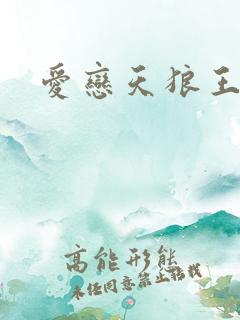 愛戀天狼王
高能形能
未经同意禁止转找